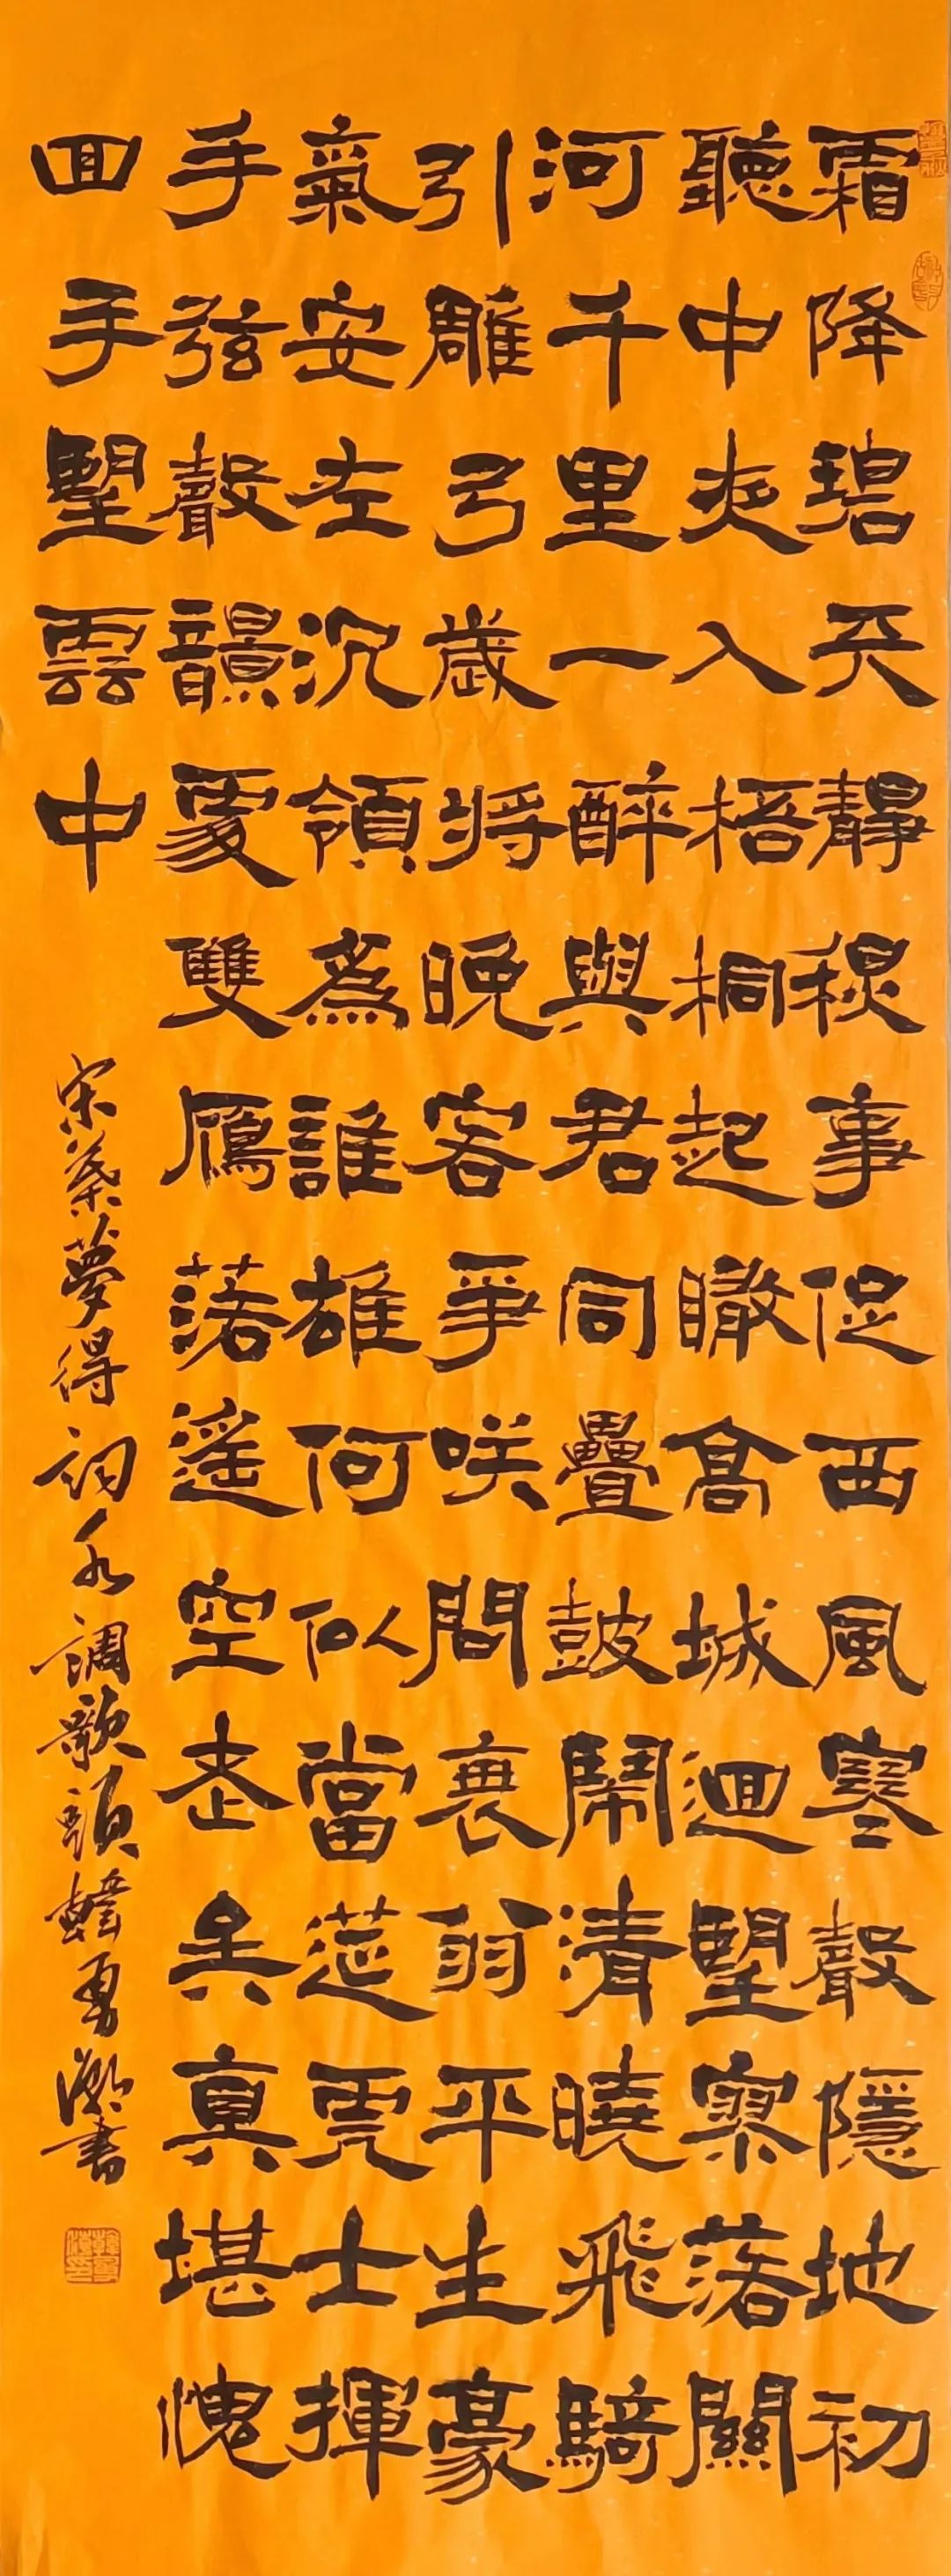 霜降碧天靜穓事促西風寒聲隱地初
聽中夾入梧桐起瞰高城迴望寥落關
河千里一醉與君同疊鼓鬧清曉飛騎
引雕弓歲將晚客爭咲問衰翁平生豪
氣安左沉領為誰雄何似當筵虎士揮
手弦聲韻處雙鴈落遙空老矣真堪愧
回手望雲中
宋葉夢得詞水調歌頭韓勇瀚書